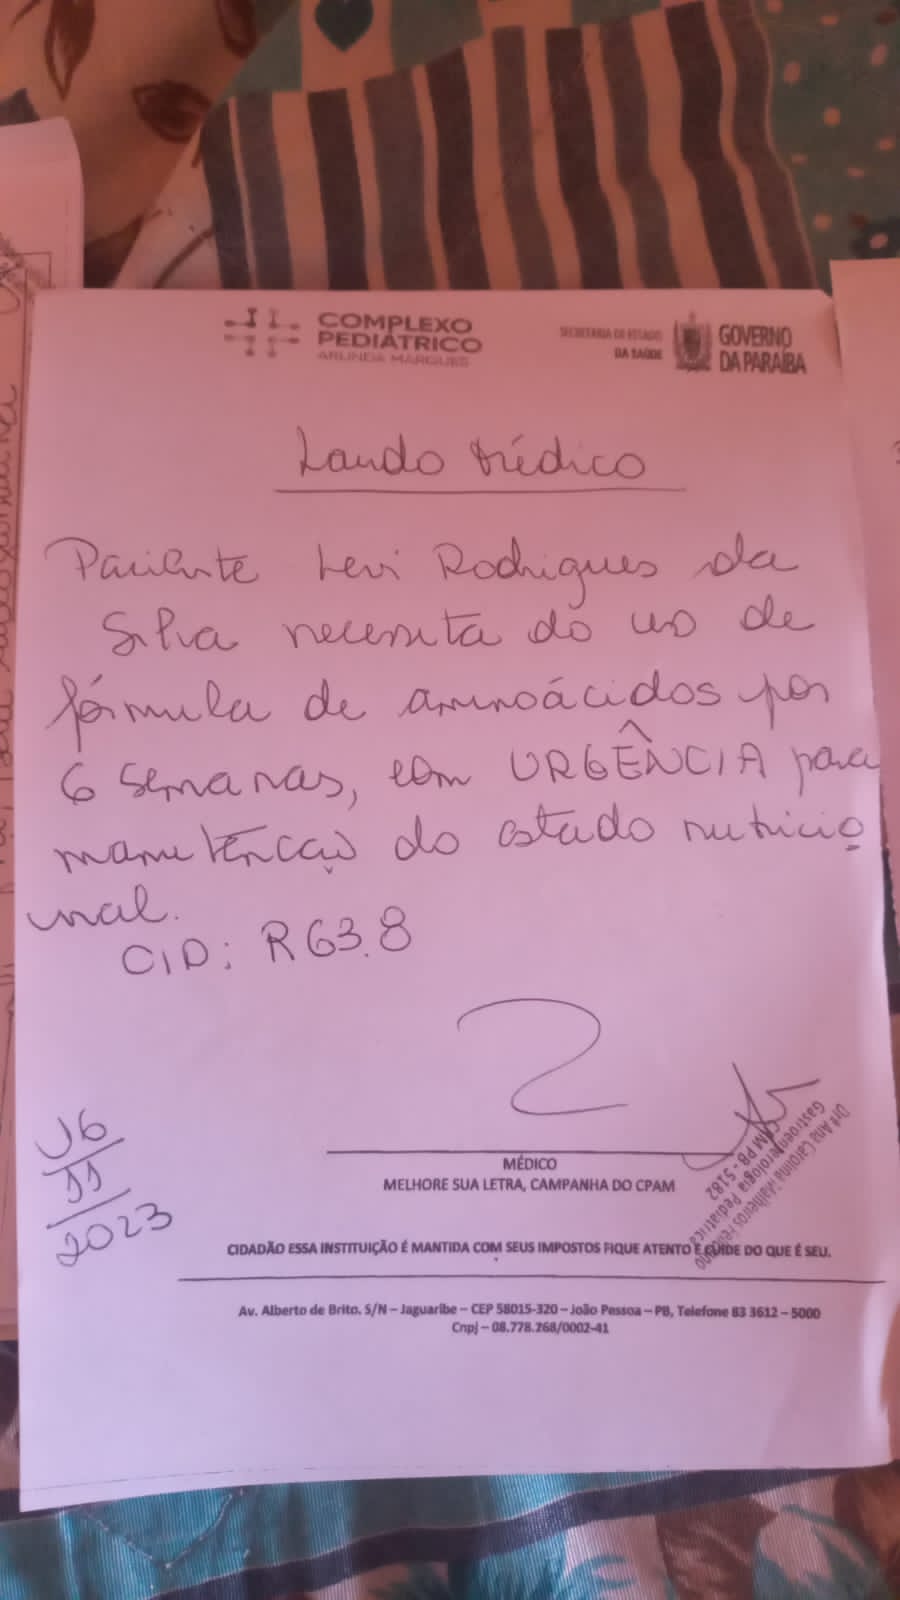 COMPLEXO
PEDIÁTRICO
ARLINDA MARQUES
SECRETARIA DE ESTADO
DA SAÚDE
GOVERNO
DA PARAÍBA
Laudo Médico
Paciente Levi Rodrigues da
Silva necessita do uso de
fórmula de aminoácidos por
6 semanas, com URGÊNCIA para
manutenção do estado nutricio
nal.
CID: R63.8
MÉDICO
MELHORE SUA LETRA, CAMPANHA DO CPAM
Drª Ana Carolina Malheiros
Gastroenterologia Pediátrica
CRM PB - 5182
11
2023
CIDADÃO ESSA INSTITUIÇÃO É MANTIDA COM SEUS IMPOSTOS FIQUE ATENTO E CUIDE DO QUE É SEU.
Av. Alberto de Brito. S/N – Jaguaribe – CEP 58015-320 – João Pessoa – PB, Telefone 83 3612 – 5000
Cnpj – 08.778.268/0002-41